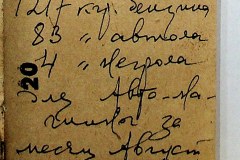 1217 кгр. бензина
83 " автола
4 " негрола
20
Для Авто-ма-
шины за
месяц Август